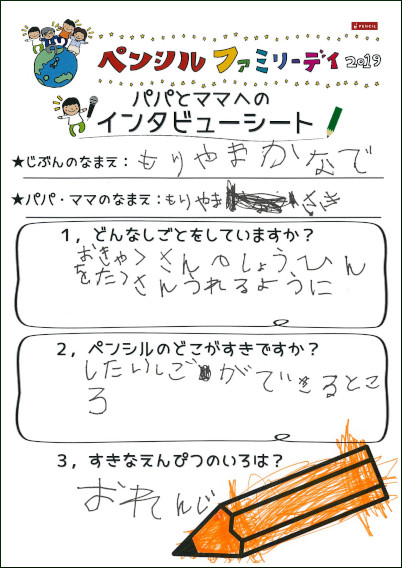 PENCIL
ペンシル ファミリーデイ 2019
パパとママへの
インタビューシート
★じぶんのなまえ：もりやまかなで
★パパ・ママのなまえ：もりやま さき
1，どんなしごとをしていますか？
おきゃくさんのしょうひん
をたくさんうれるように
2，ペンシルのどこがすきですか？
したいしごとができるとこ
ろ
3，すきなえんぴつのいろは？
おれんじ